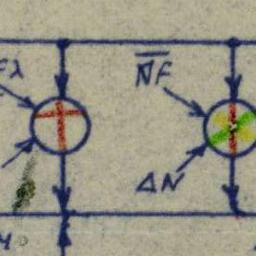 Fλ
N̅F̅
ΔN
M